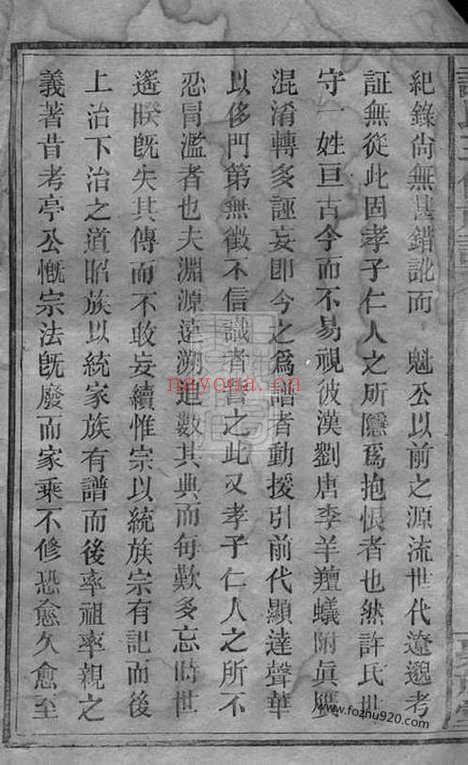 紀錄尙無甚錯訛而 魁公以前之源流世代遼邈考
証無從此固孝子仁人之所隱爲抱恨者也然許氏世
守一姓亘古今而不易視彼漢劉唐李羊羶蟻附眞贋
混淆轉多誣妄卽今之爲譜者動援引前代顯達聲華
以侈門第無徵不信識者訾之此又孝子仁人之所不
忍冒濫者也夫淵源遠溯進數其典而每歎多忘時世
遙暌旣失其傳而不敢妄續惟宗以統族宗有記而後
上治下治之道昭族以統家族有譜而後率祖率親之
義著昔考亭公慨宗法旣廢而家乘不修恐愈久愈至
nayona.cn
www.fozhu920.com